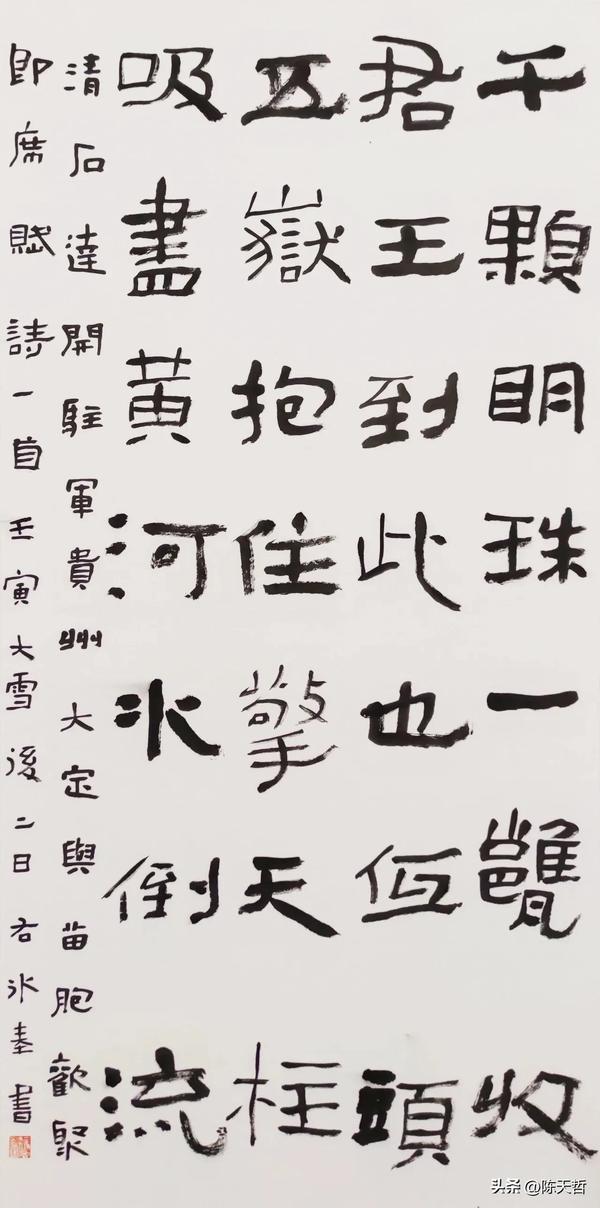 千顆眀珠一甕收
君王到此也低頭
五嶽抱住擎天柱
吸盡黃河水倒流
清石達開駐軍貴州大定與苗胞歡聚
即席賦詩一首 壬寅大雪後二日 右冰奉書
头条 @陈天哲